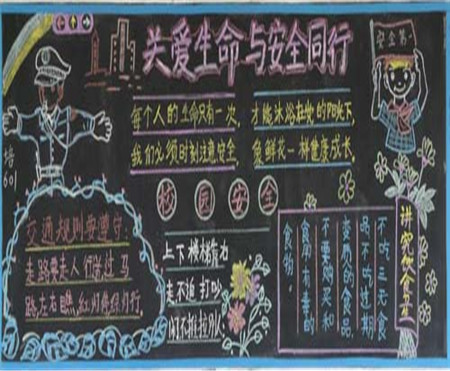 关爱生命与安全同行
安全第一
每个人的生命只有一次,
我们必须时刻注意安全,
才能沐浴在她的阳光下,
象鲜花一样健康成长。
601
校园安全
交通规则要遵守:
走路要走人行道,过马
路,左右瞧,红灯停绿灯行.
上下楼梯靠右
走不追打叫
闹不推拉别人
讲究饮食卫生
不吃三无食
品不吃过期
变质的食品,
不要购买和
食用有毒的
食物.